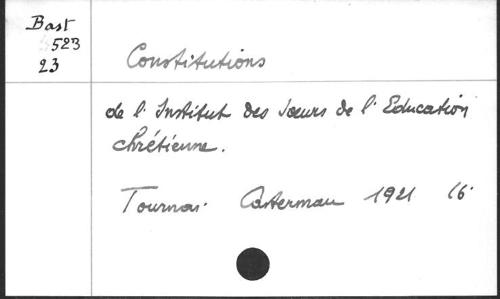 Bast
523
23
Constitutions
de l'Institut des Sœurs de l'Education
chrétienne.
Tournai. Casterman 1921 16°